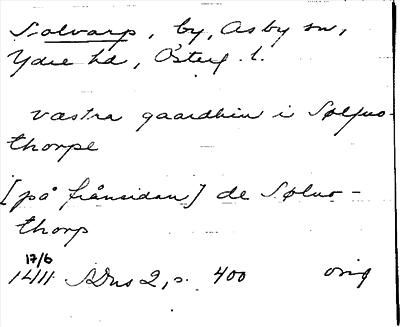 Solvarp, by, Asby sn,
Ydre hd, Österg. l.
væstra gaardhin i Sølfuo-
thorpe
[på frånsidan] de Søluo-
thorp
17/6
1411 SDns 2, s. 400 orig